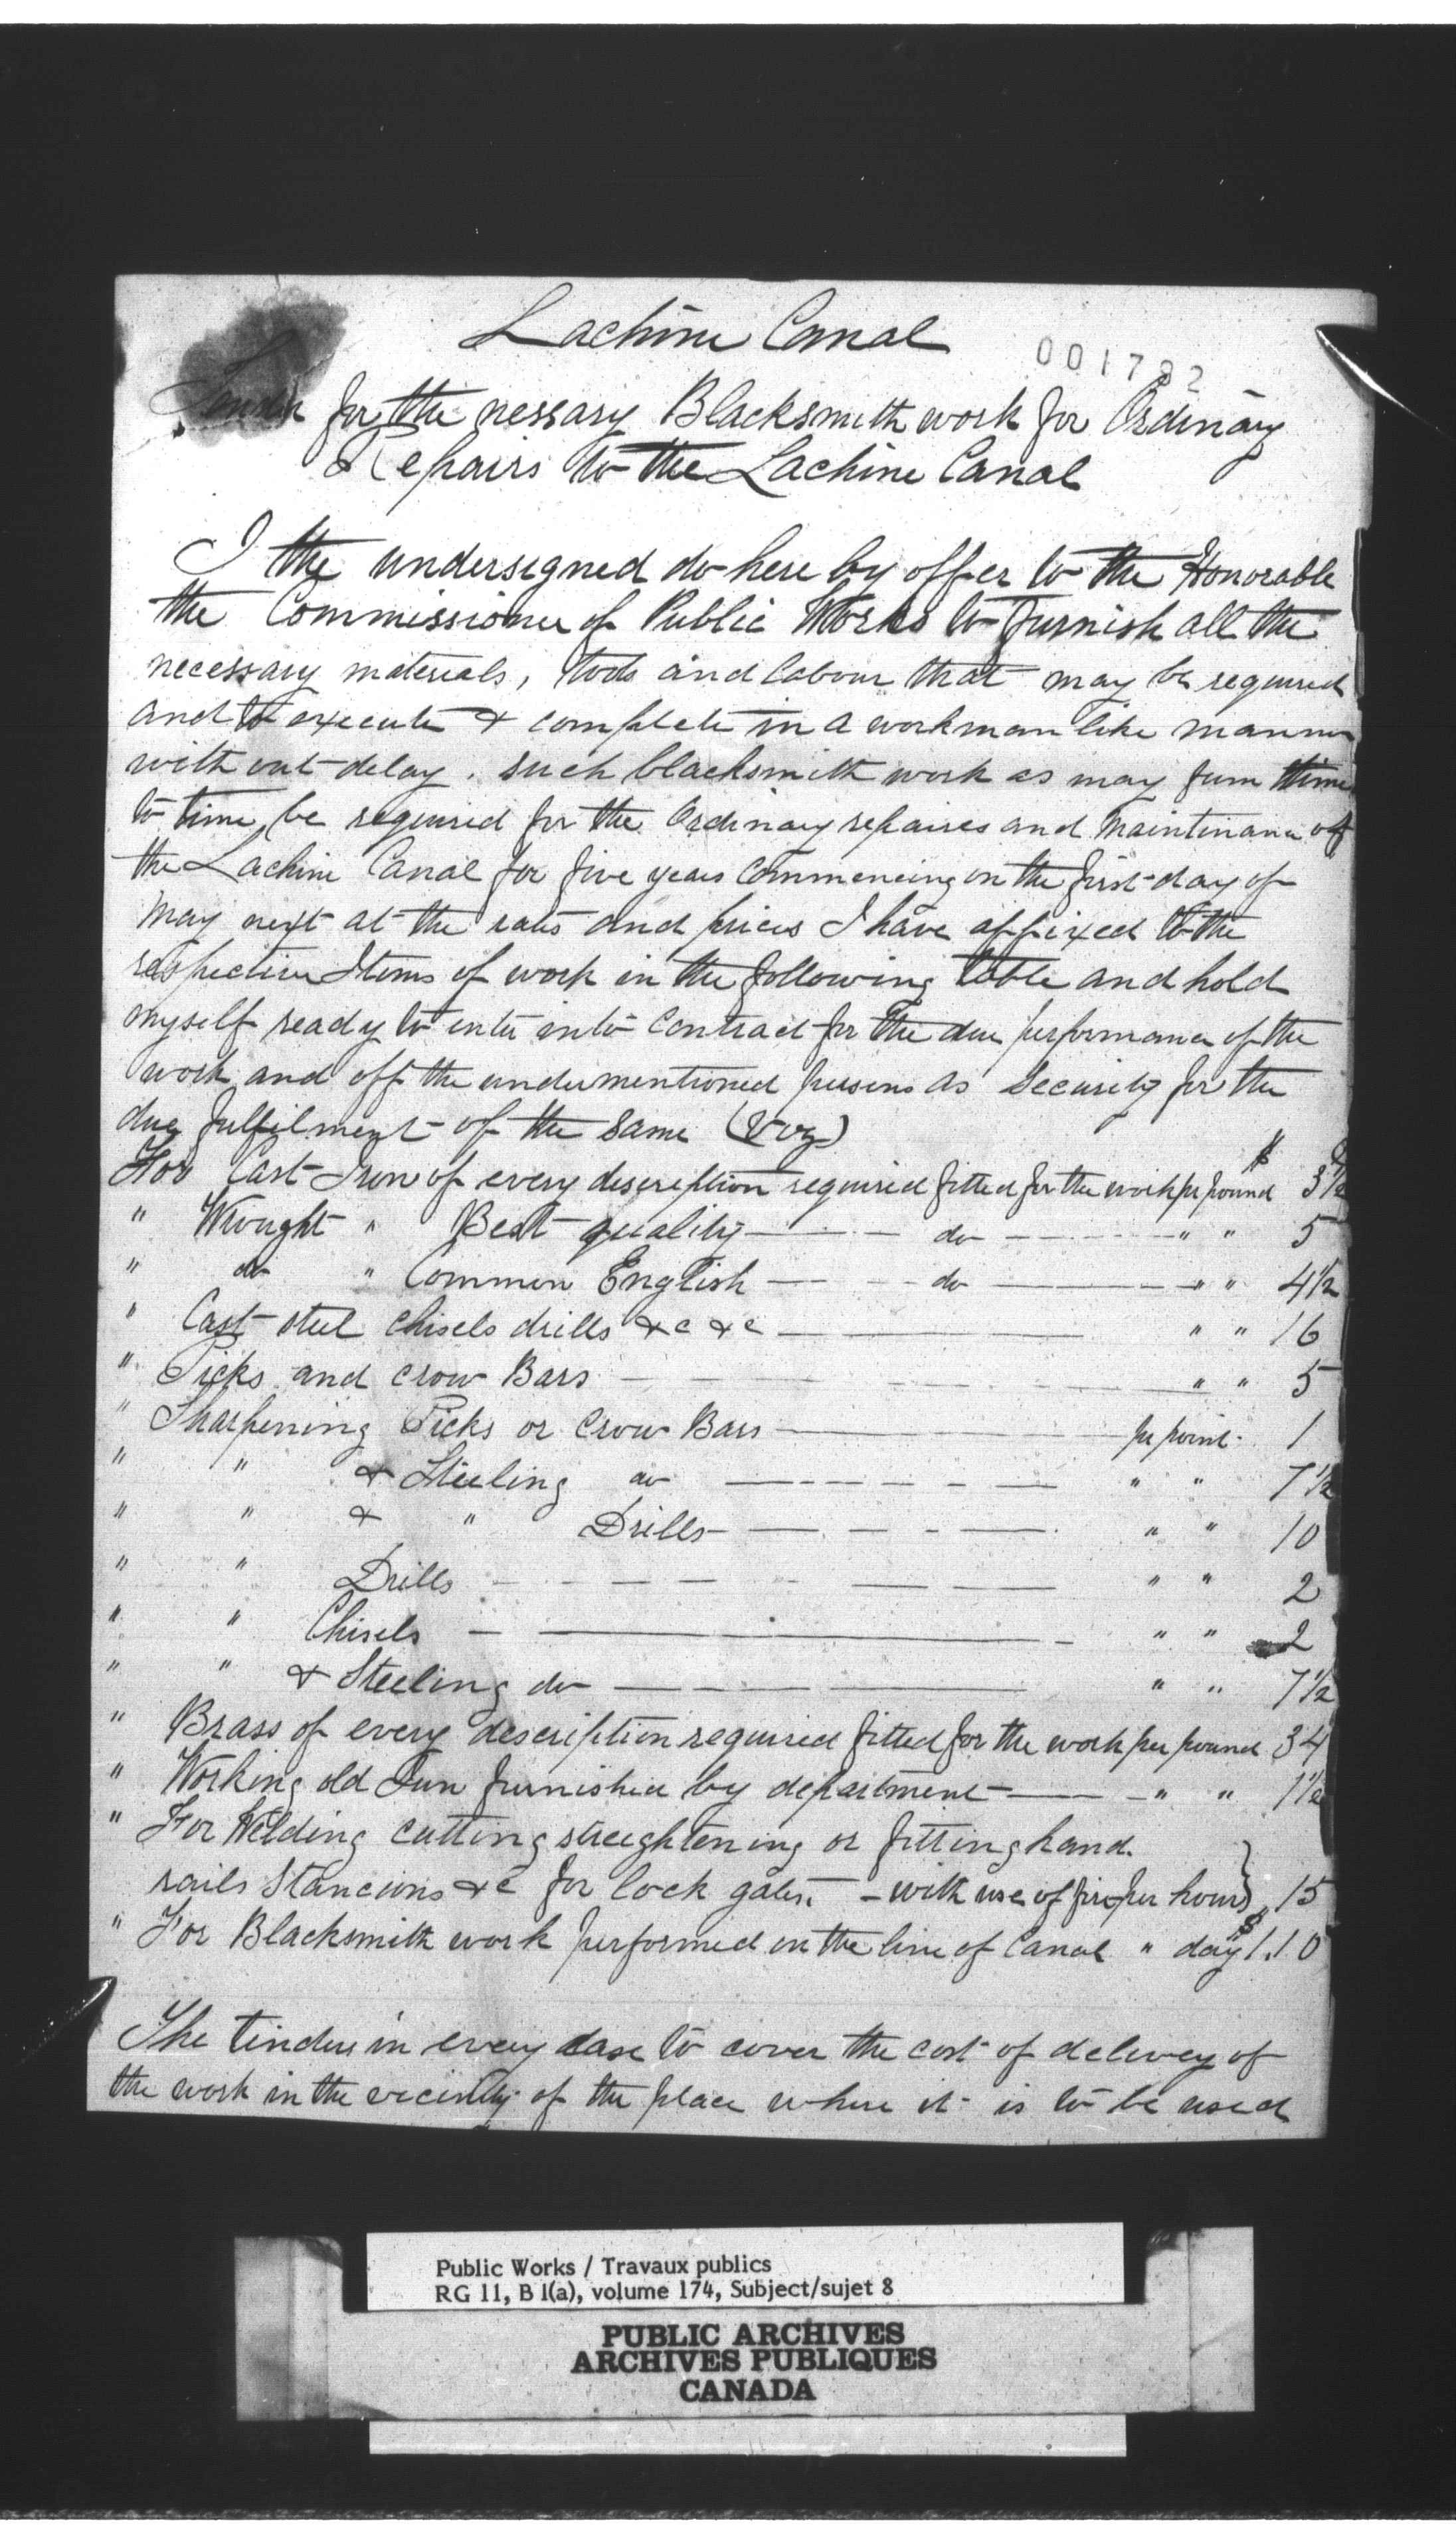 Lachine Canal
001792
Tender for the nessary Blacksmith work for Ordinary
Repairs to the Lachine Canal
I the undersigned do here by offer to the Honorable
the Commissioner of Public Works to furnish all the
necessary materials, tools and labour that may be required
and to execute & complete in a workman like manner
with out delay. such blacksmith work as may from time
to time be required for the Ordinary repaires and maintinance of
the Lachine Canal for five years Commencing on the first day of
May next at the rates and prices I have affixed to the
respective Items of work in the following table and hold
myself ready to enter into contract for the due performance of the
work and off the undermentioned persons as security for the
due fulfilment of the same (Viz)
$ C
For Cast Iron of every description required fitted for the work per pound 3½
" Wrought " Best quality — do — " " 5
" do " Common English — do — " " 4½
" Cast steel chisels drills &c &c — " " 16
" Picks and crow Bars — " " 5
" Sharpening Picks or Crow Bars — per point 1
" " & Steeling do — " " 7½
" " & " Drills — " " 10
" " Drills — " " 2
" " Chisels — " " 2
" " & Steeling do — " " 7½
" Brass of every description required fitted for the work per pound 34
" Working old Iron furnished by department — " " 1½
" For Welding cutting streightening or fitting hand.
rails Stancions &c for lock gates. – with use of fire per hour} " 15
" For Blacksmith work performed on the line of Canal " day $1.10
The tender in every case to cover the cost of delivey of
the work in the vicinity of the place where it is to be used
Public Works / Travaux publics
RG 11, B 1(a), volume 174, Subject/sujet 8
PUBLIC ARCHIVES
ARCHIVES PUBLIQUES
CANADA